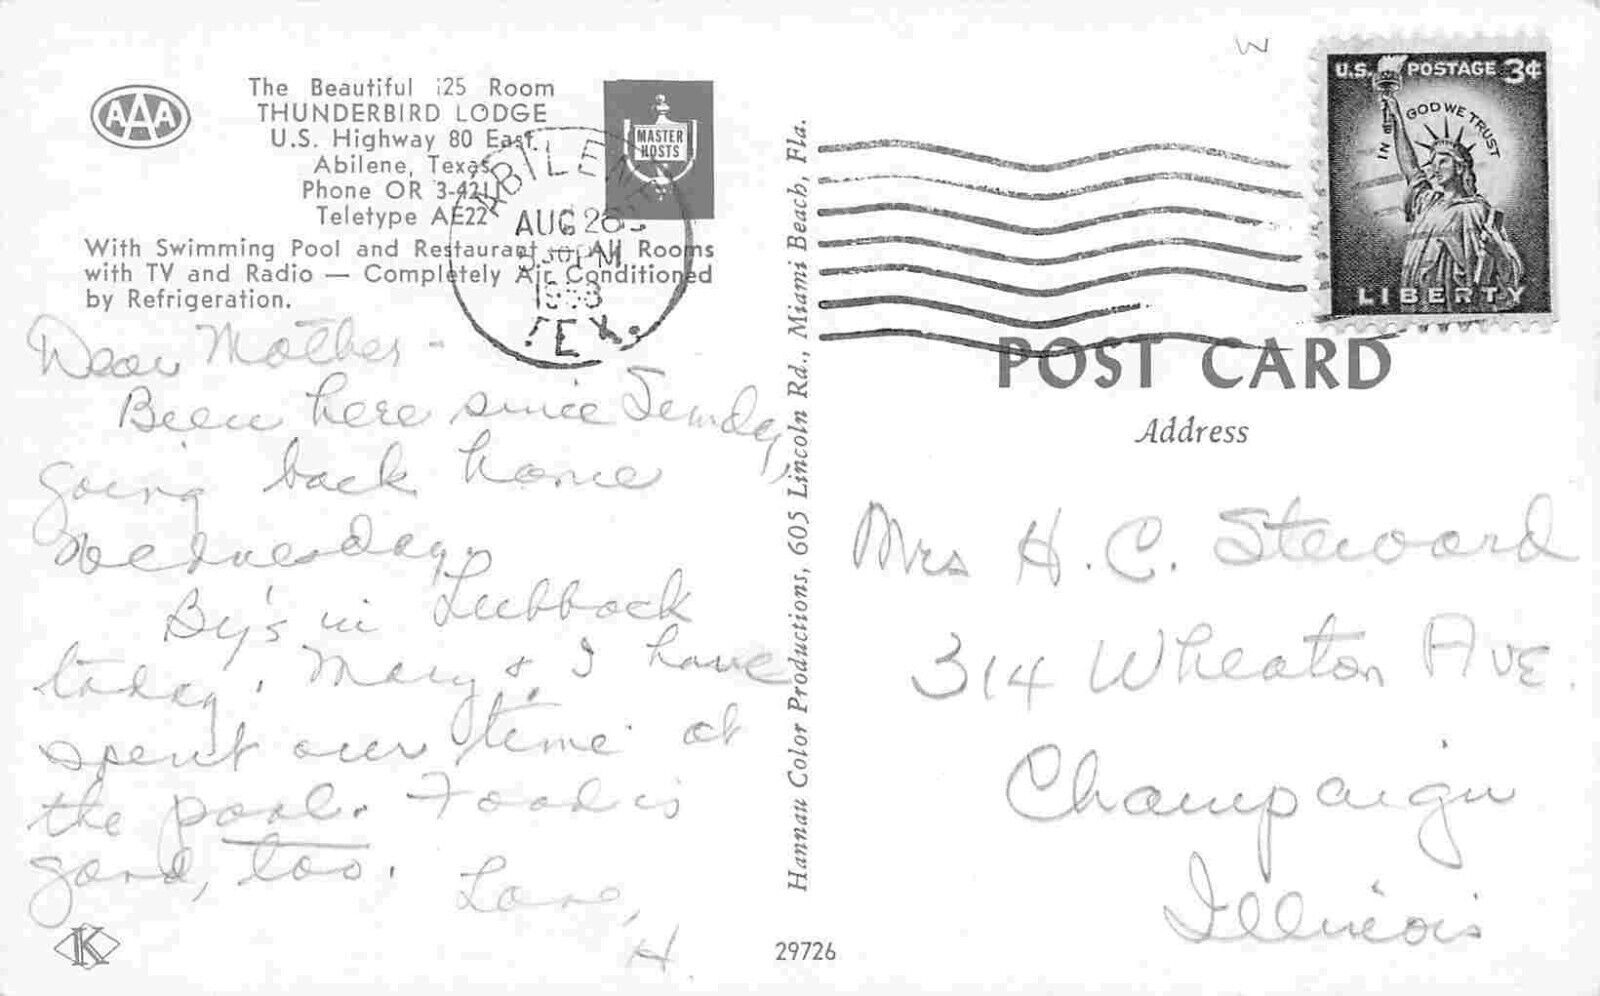 AAA
The Beautiful 125 Room
THUNDERBIRD LODGE
U.S. Highway 80 East
Abilene, Texas
Phone OR 3-4211
Teletype AE22
With Swimming Pool and Restaurant — All Rooms
with TV and Radio — Completely Air Conditioned
by Refrigeration.
MASTER
HOSTS
ABILENE
AUG 26
PM
1958
TEX.
Dear Mother -
Been here since Sunday,
going back home
Wednesday.
By's in Lubbock
today. Mary & I have
spent our time at
the pool. Food is
good, too.
Love,
H.
K
Hannau Color Productions, 605 Lincoln Rd., Miami Beach, Fla.
29726
W
U.S. POSTAGE 3¢
IN GOD WE TRUST
LIBERTY
POST CARD
Address
Mrs H. C. Steward
314 Wheaton Ave.
Champaign
Illinois